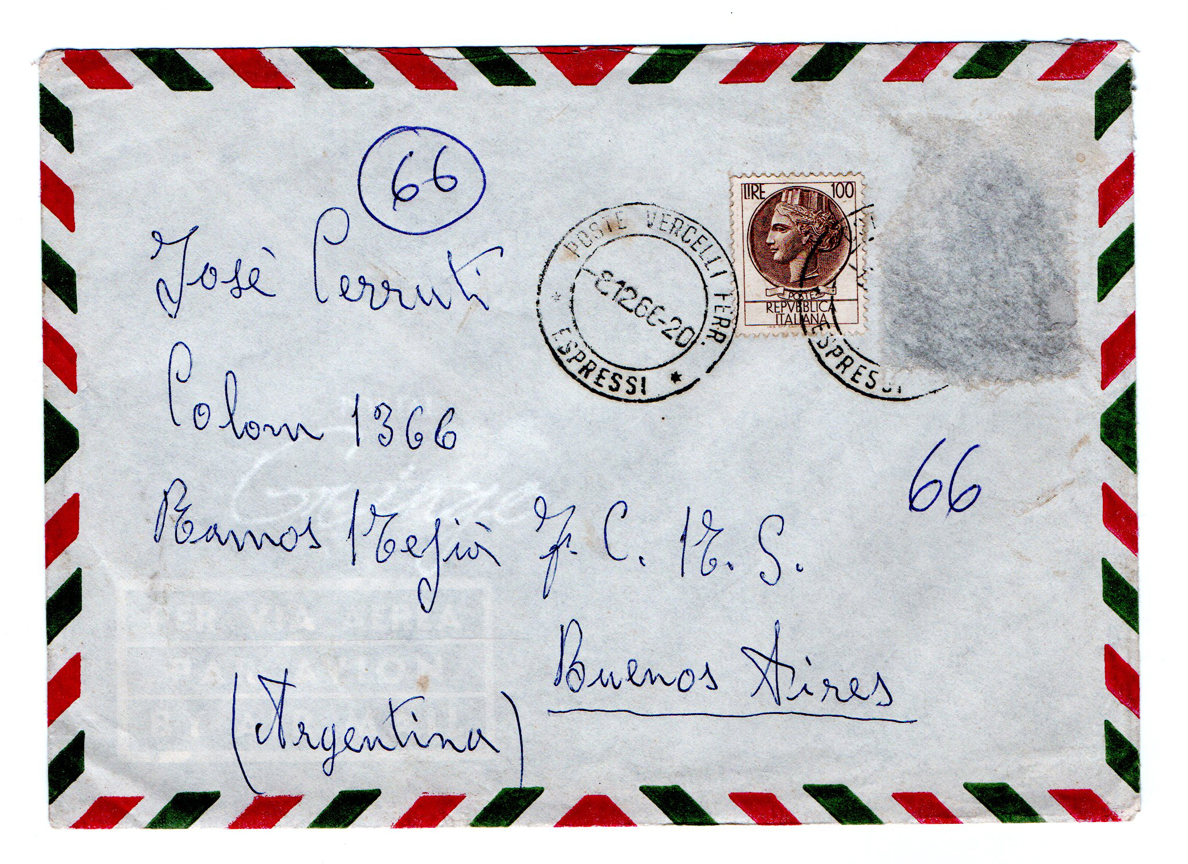 66
Josè Cerruti
Colom 1366
Ramos Mejià F. C. M. S.
Buenos Aires
(Argentina)
66
POSTE VERCELLI FERR.
-8.12.66-20
* ESPRESSI *
LIRE 100
POSTE
REPVBBLICA
ITALIANA
ESPRESSI
PER VIA AEREA
PAR AVION